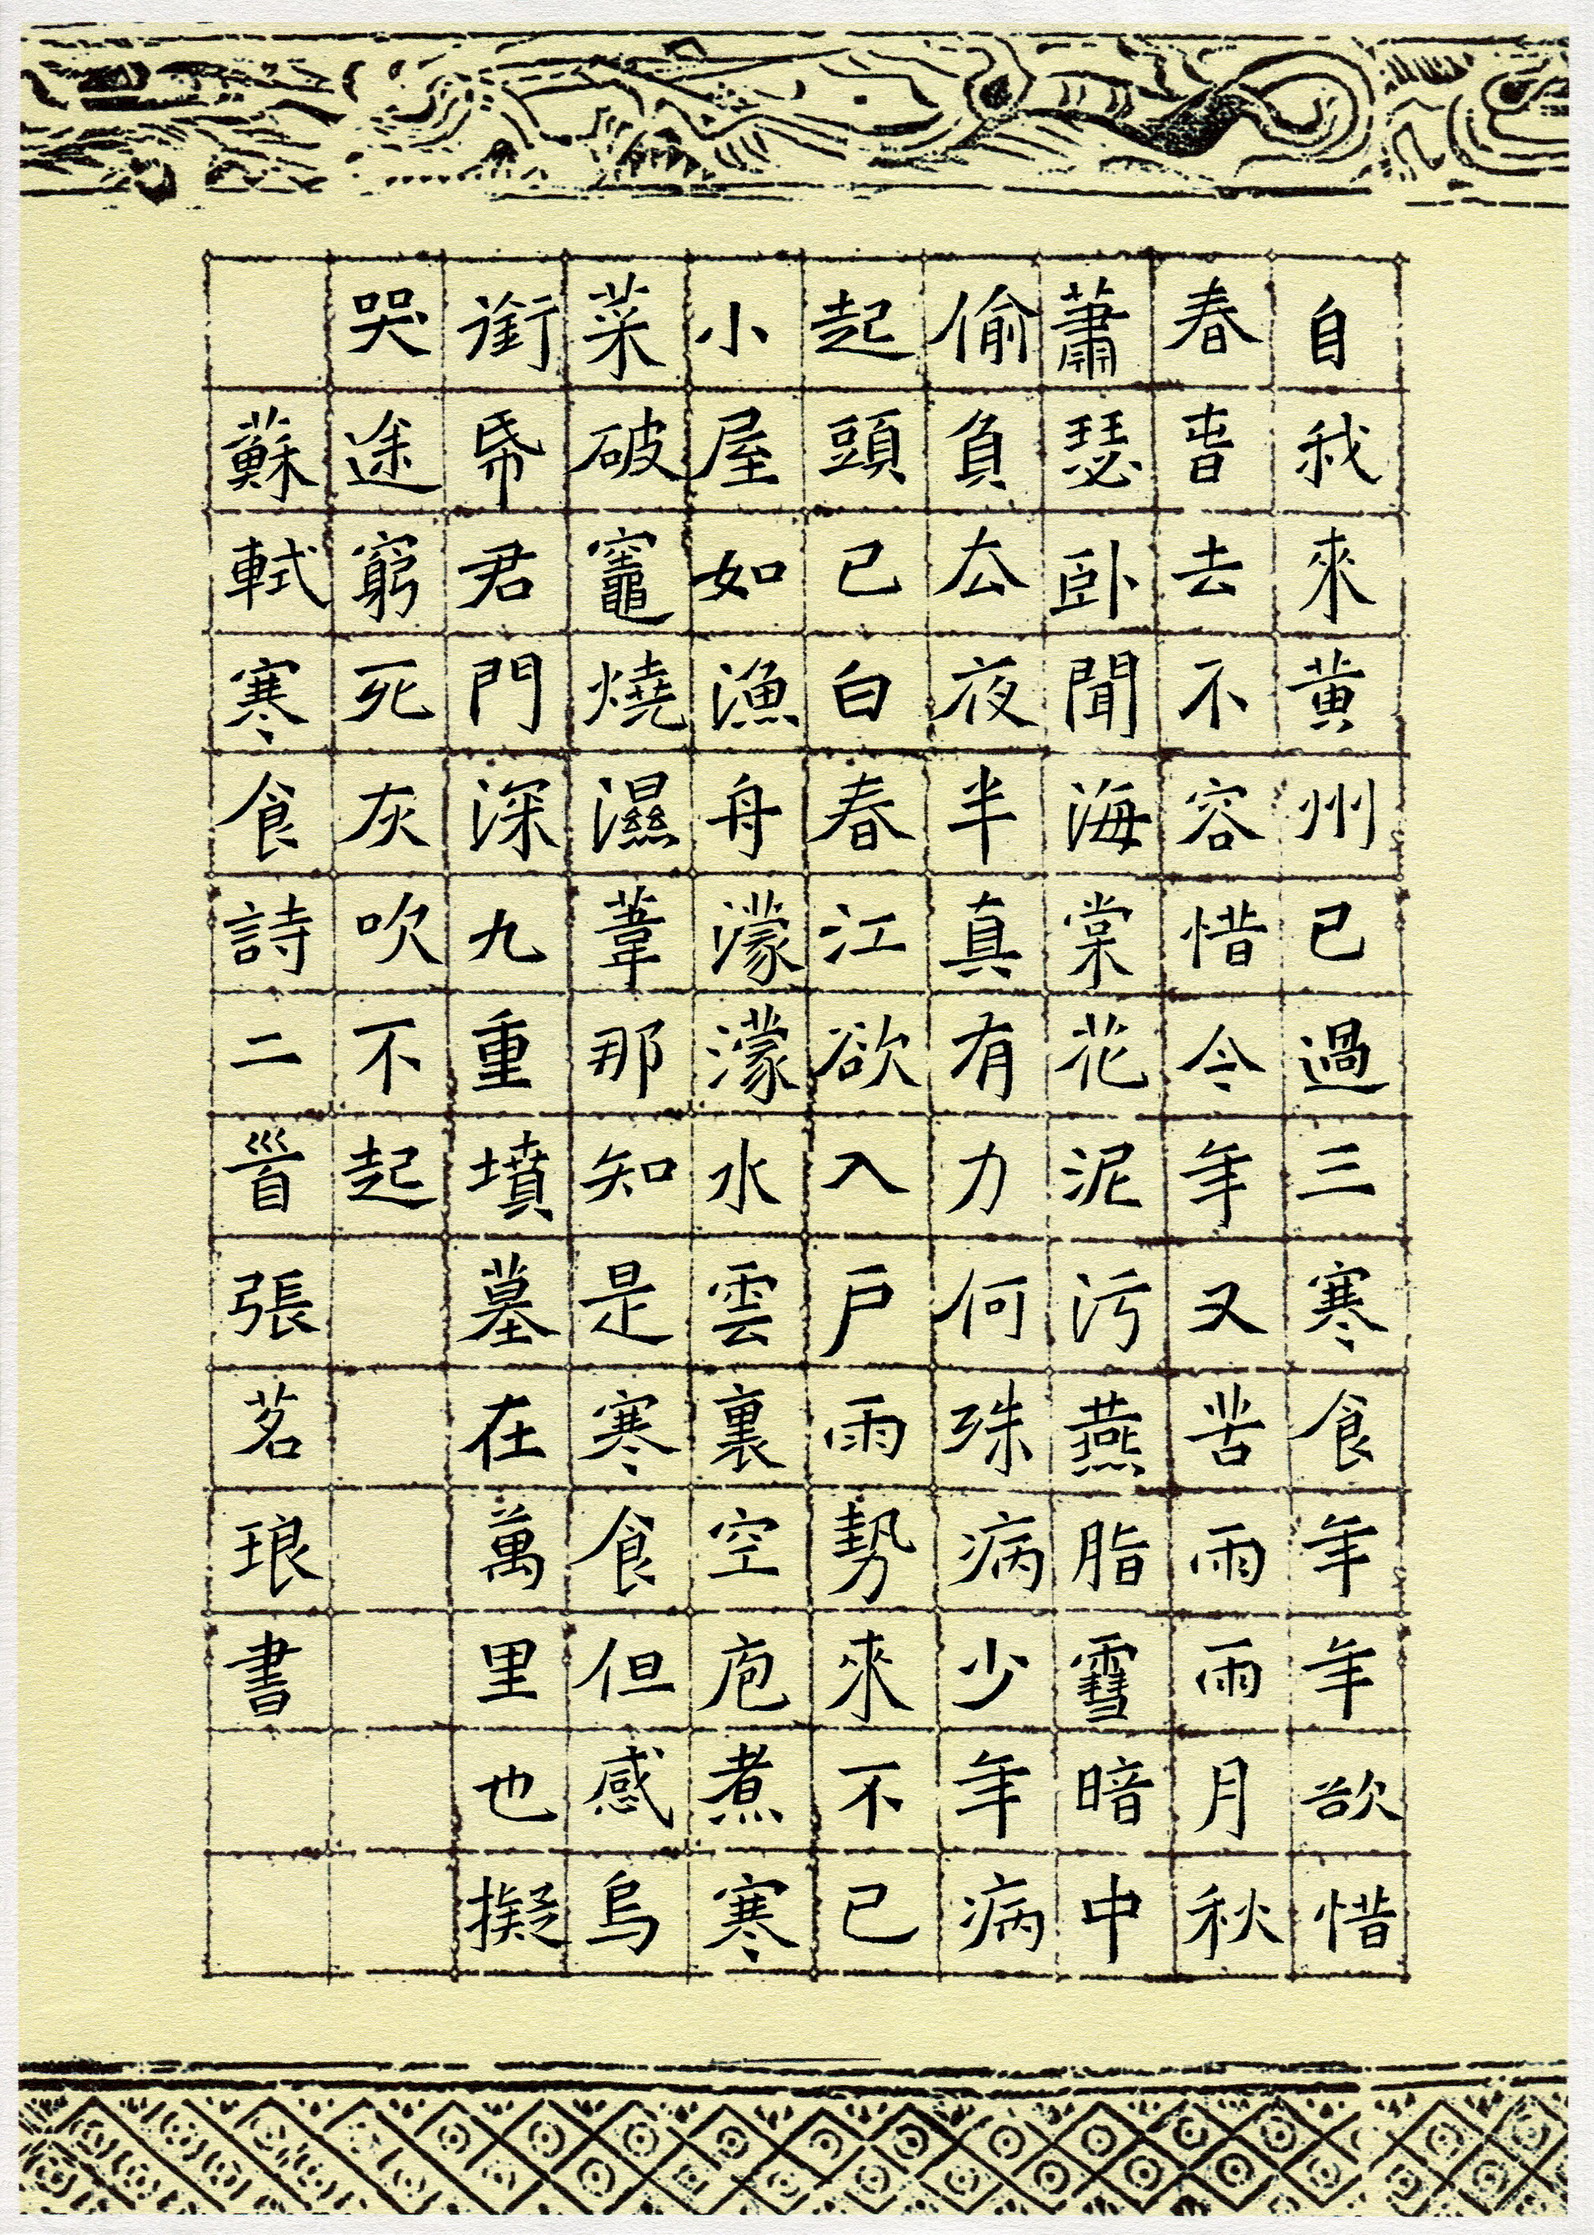 自我來黄州已過三寒食年年欲惜
春旾去不容惜今年又苦雨雨月秋
蕭瑟卧聞海棠花泥污燕脂雪暗中
偷負厺夜半真有力何殊病少年病
起頭已白春江欲入戶雨勢來不已
小屋如漁舟濛濛水雲裏空庖煮寒
菜破竈燒濕葦那知是寒食但感烏
銜帋君門深九重墳墓在萬里也擬
哭途窮死灰吹不起
蘇軾寒食詩二𩠐張茗琅書